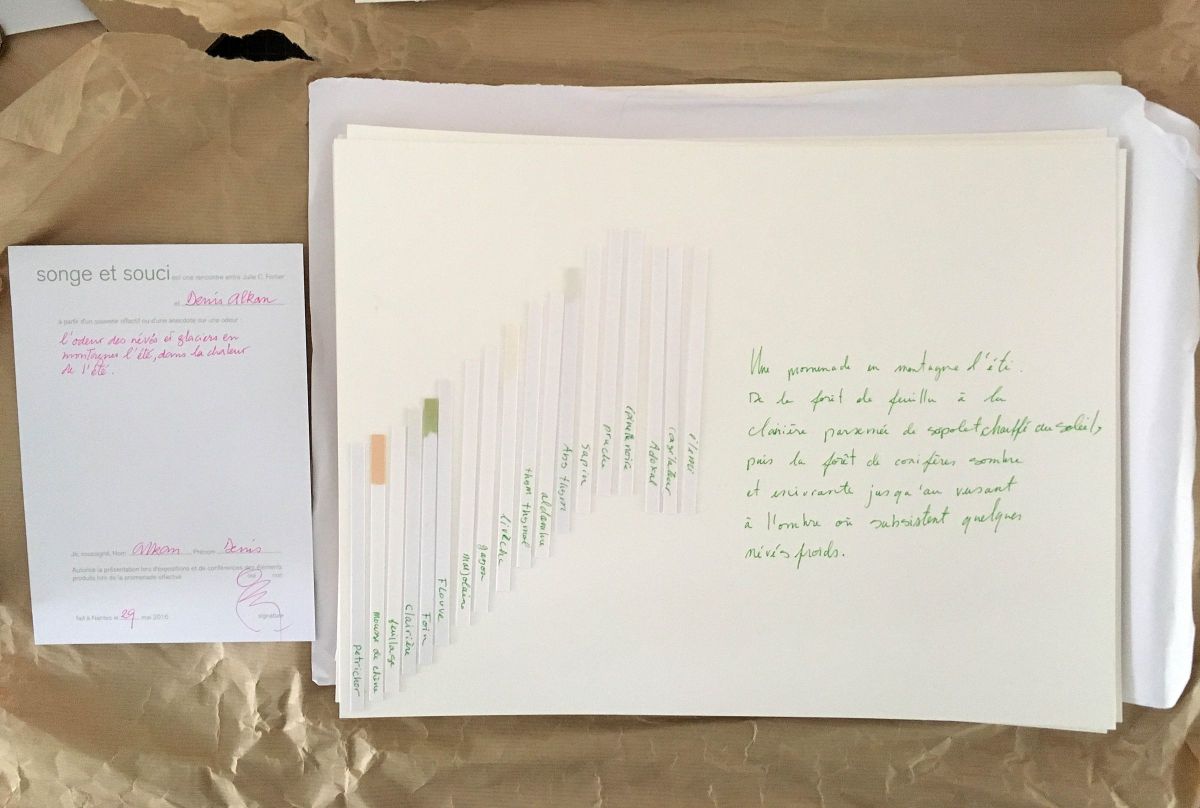 songe et souci est une rencontre entre Julie C. Fortier
et Denis Alkan
à partir d'un souvenir olfactif ou d'une anecdote sur une odeur :
l'odeur des névés et glaciers en
montagne l'été, dans la chaleur
de l'été.
Je, soussigné, Nom Alkan, Prénom Denis
Autorise la présentation lors d'expositions et de conférences des éléments
produits lors de la promenade olfactive
oui non
fait à Nantes le 29 mai 2016
signature
petrichor
mousse de chêne
feuillage
clairière
Foin
Flouve
marjolaine
gazon
livèche
thym thymol
aldambre
Abs thym
Sapin
pruche
épinette noire
Adoxal
élémi
Une promenade en montagne l'été.
De la forêt de feuillu à la
clairière parsemée de serpolet chauffé au soleil,
puis la forêt de conifères sombre
et enivrante jusqu'au versant
à l'ombre où subsistent quelques
névés froids.